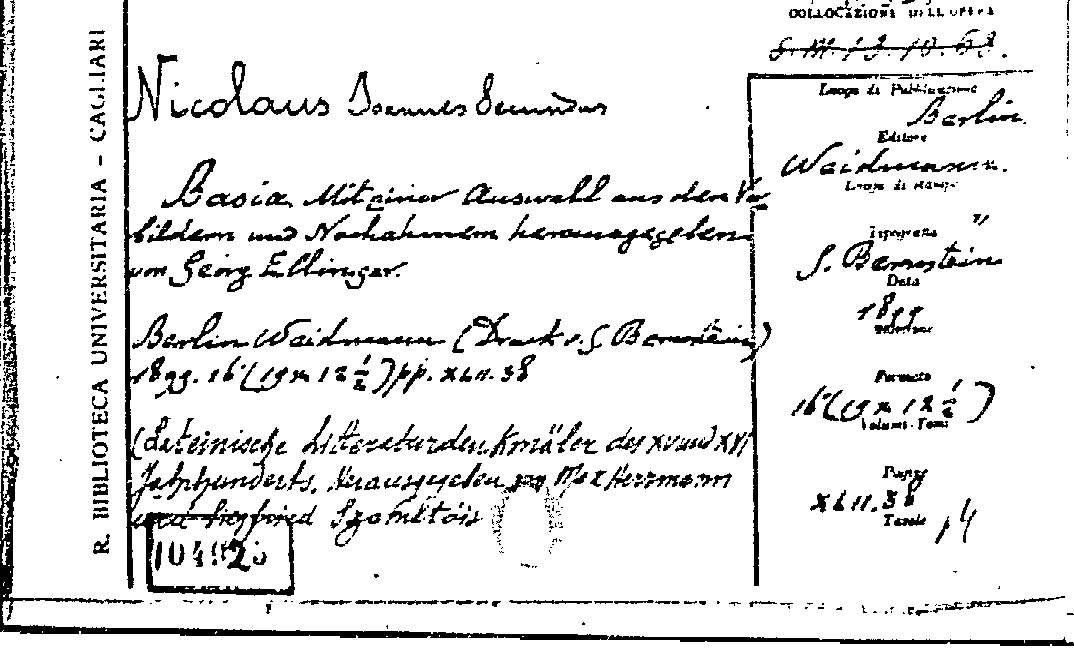 R. BIBLIOTECA UNIVERSITARIA - CAGLIARI
COLLOCAZIONE DELL'OPERA
S.M. 13. 10. 68.
Nicolaus Ioannes Secundus
Basia. Mit einer Auswahl aus den Vor
bildern und Nachahmern herausgegeben
von Georg Ellinger.
Berlin Weidmann (Druck v. S. Bernstein)
1899. 16° (19 x 12 ½) pp. XLII. 38
(Lateinische Litteraturdenkmäler des XV und XVI
Jahrhunderts. Herausgegeben von Max Herrmann
und Siegfried Szamatólski
Luogo di Pubblicazione
Berlin.
Editore
Weidmann.
Luogo di stampa
"
Tipografia
S. Bernstein
Data
1899
Formato
16° (19 x 12 ½)
Volumi-Tomi
Pagg
XLII. 38
Tavole